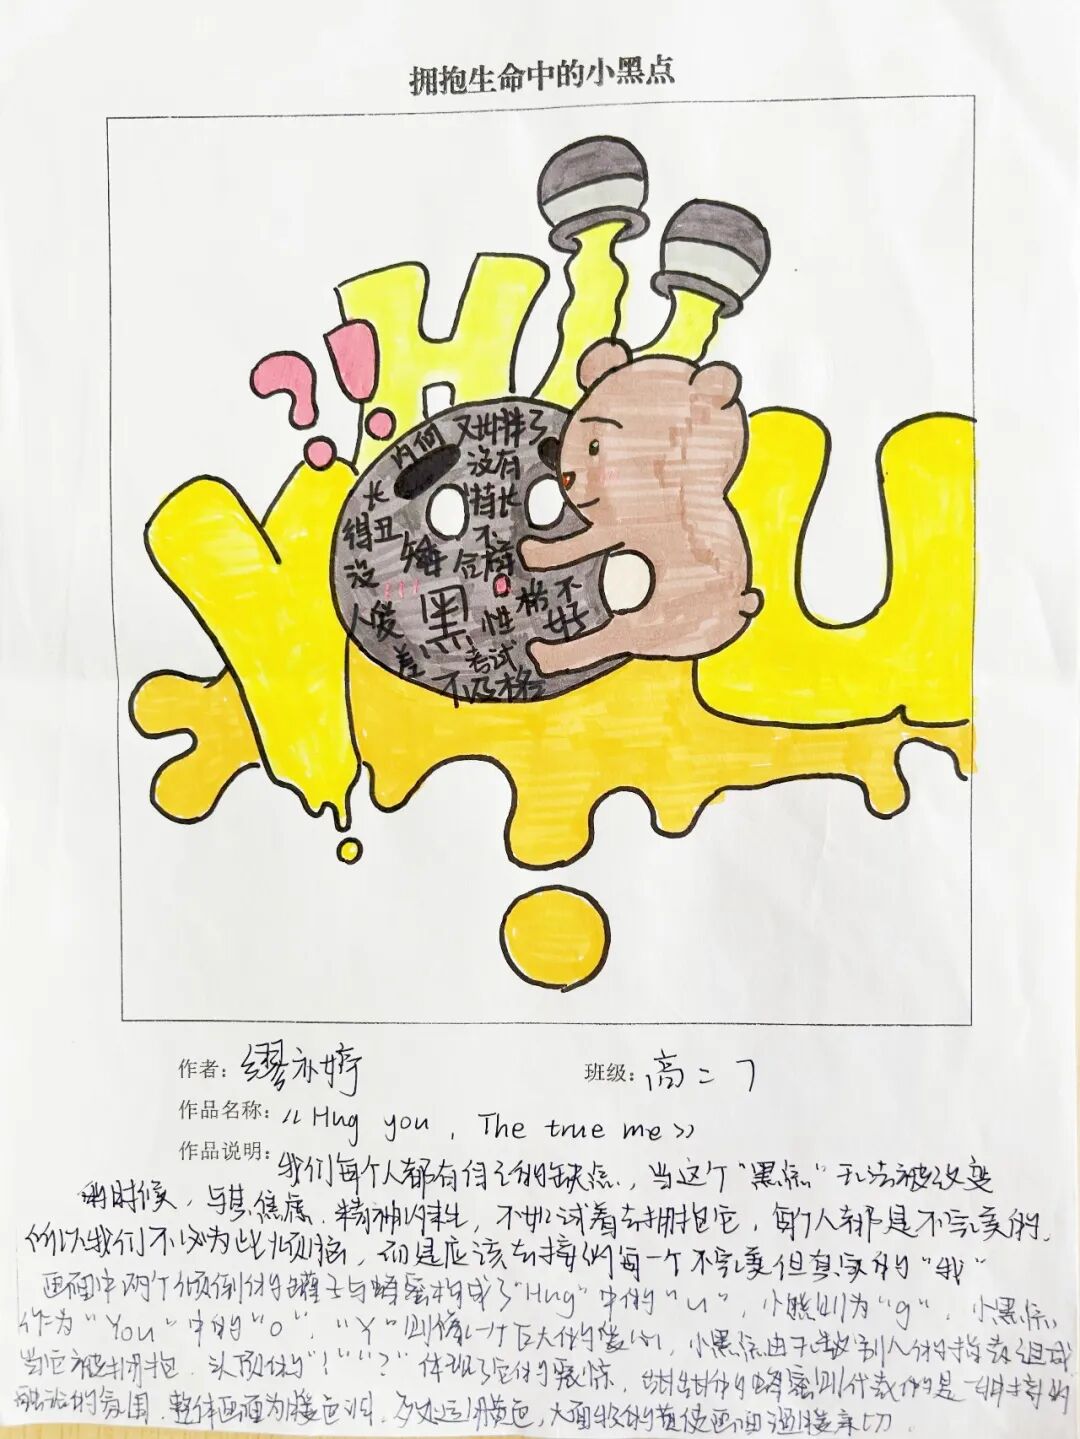 拥抱生命中的小黑点
HU
YOU
?!
内向 又胖了
没有
长 特长
得丑 不
矮 合群
没
黑 格不
人缘 性 好
差 考试
不及格
作者: 缪 婷
班级: 高二7
作品名称: 《Hug you, The true me》
作品说明: 我们每个人都有自己的缺点,当这个“黑点”无法被改变
的时候,与其焦虑、精神内耗,不如试着去拥抱它,每个人都是不完美的,
所以我们不必为此烦恼,而是应该去接纳每一个不完美但真实的“我”
画面中两个倾倒的罐子与蜂蜜构成了“Hug”中的“u”,小熊则为“g”,小黑点
作为“You”中的“o”,“Y”则像一个巨大的 ,小黑点由无数别人的指责组成
当它被拥抱,头顶的“!”“?”体现了它的震惊, 的蜂蜜则代表的是一种
融洽的氛围,整体画面为暖色调,多处运用黄色,大面积的黄使画面温暖亲切.